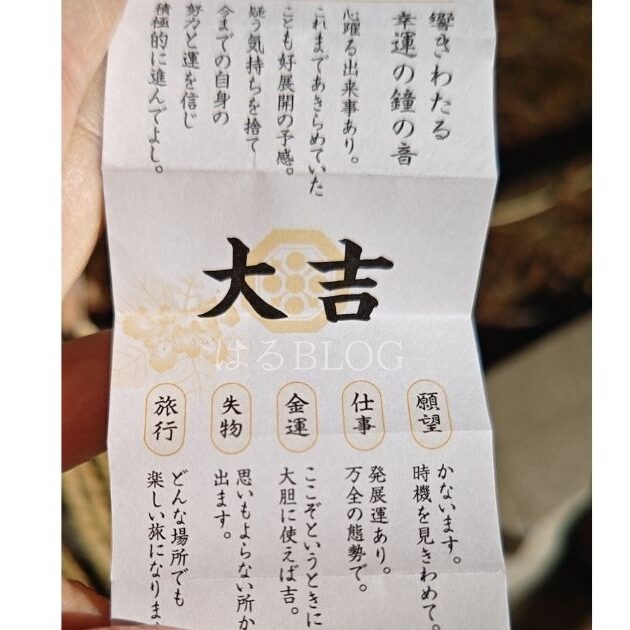 響きわたる
幸運の鐘の音
心躍る出来事あり。
これまであきらめていた
ことも好展開の予感。
疑う気持ちを捨て
今までの自身の
努力と運を信じ
積極的に進んでよし。
大吉
はるBLOG
願望
かないます。
時機を見きわめて。
仕事
発展運あり。
万全の態勢で。
金運
ここぞというときに
大胆に使えば吉。
失物
思いもよらない所か
出ます。
旅行
どんな場所でも
楽しい旅になりま